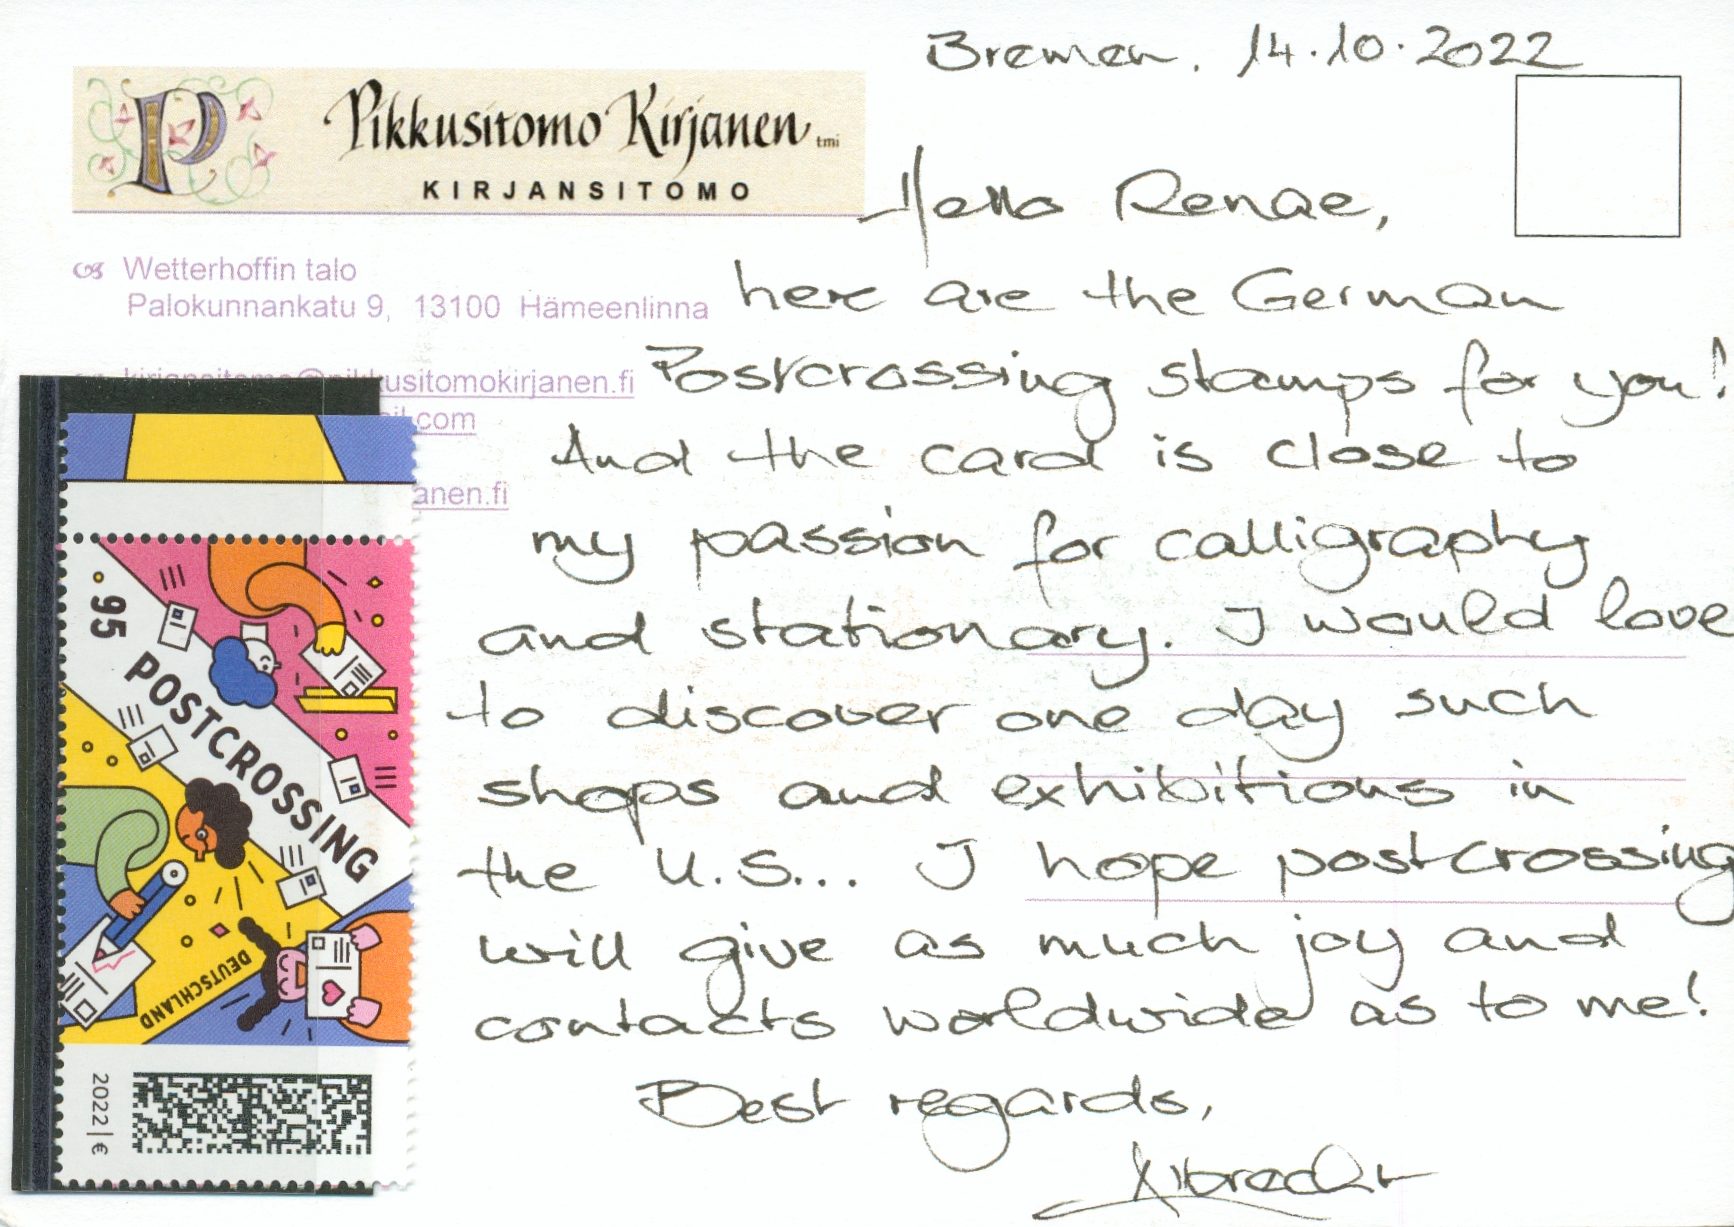 Bremen, 14.10.2022
Pikkusitomo Kirjanen tmi
KIRJANSITOMO
Hello Renae,
Wetterhoffin talo
Palokunnankatu 9, 13100 Hämeenlinna
here are the German
kirjansitomo@pikkusitomokirjanen.fi
Postcrossing stamps for you!
.com
And the card is close to
anen.fi
my passion for calligraphy
and stationary. I would love
to discover one day such
shops and exhibitions in
the U.S... I hope postcrossing
will give as much joy and
contacts worldwide as to me!
Best regards,
Albrecht
95
POSTCROSSING
DEUTSCHLAND
2022 | €